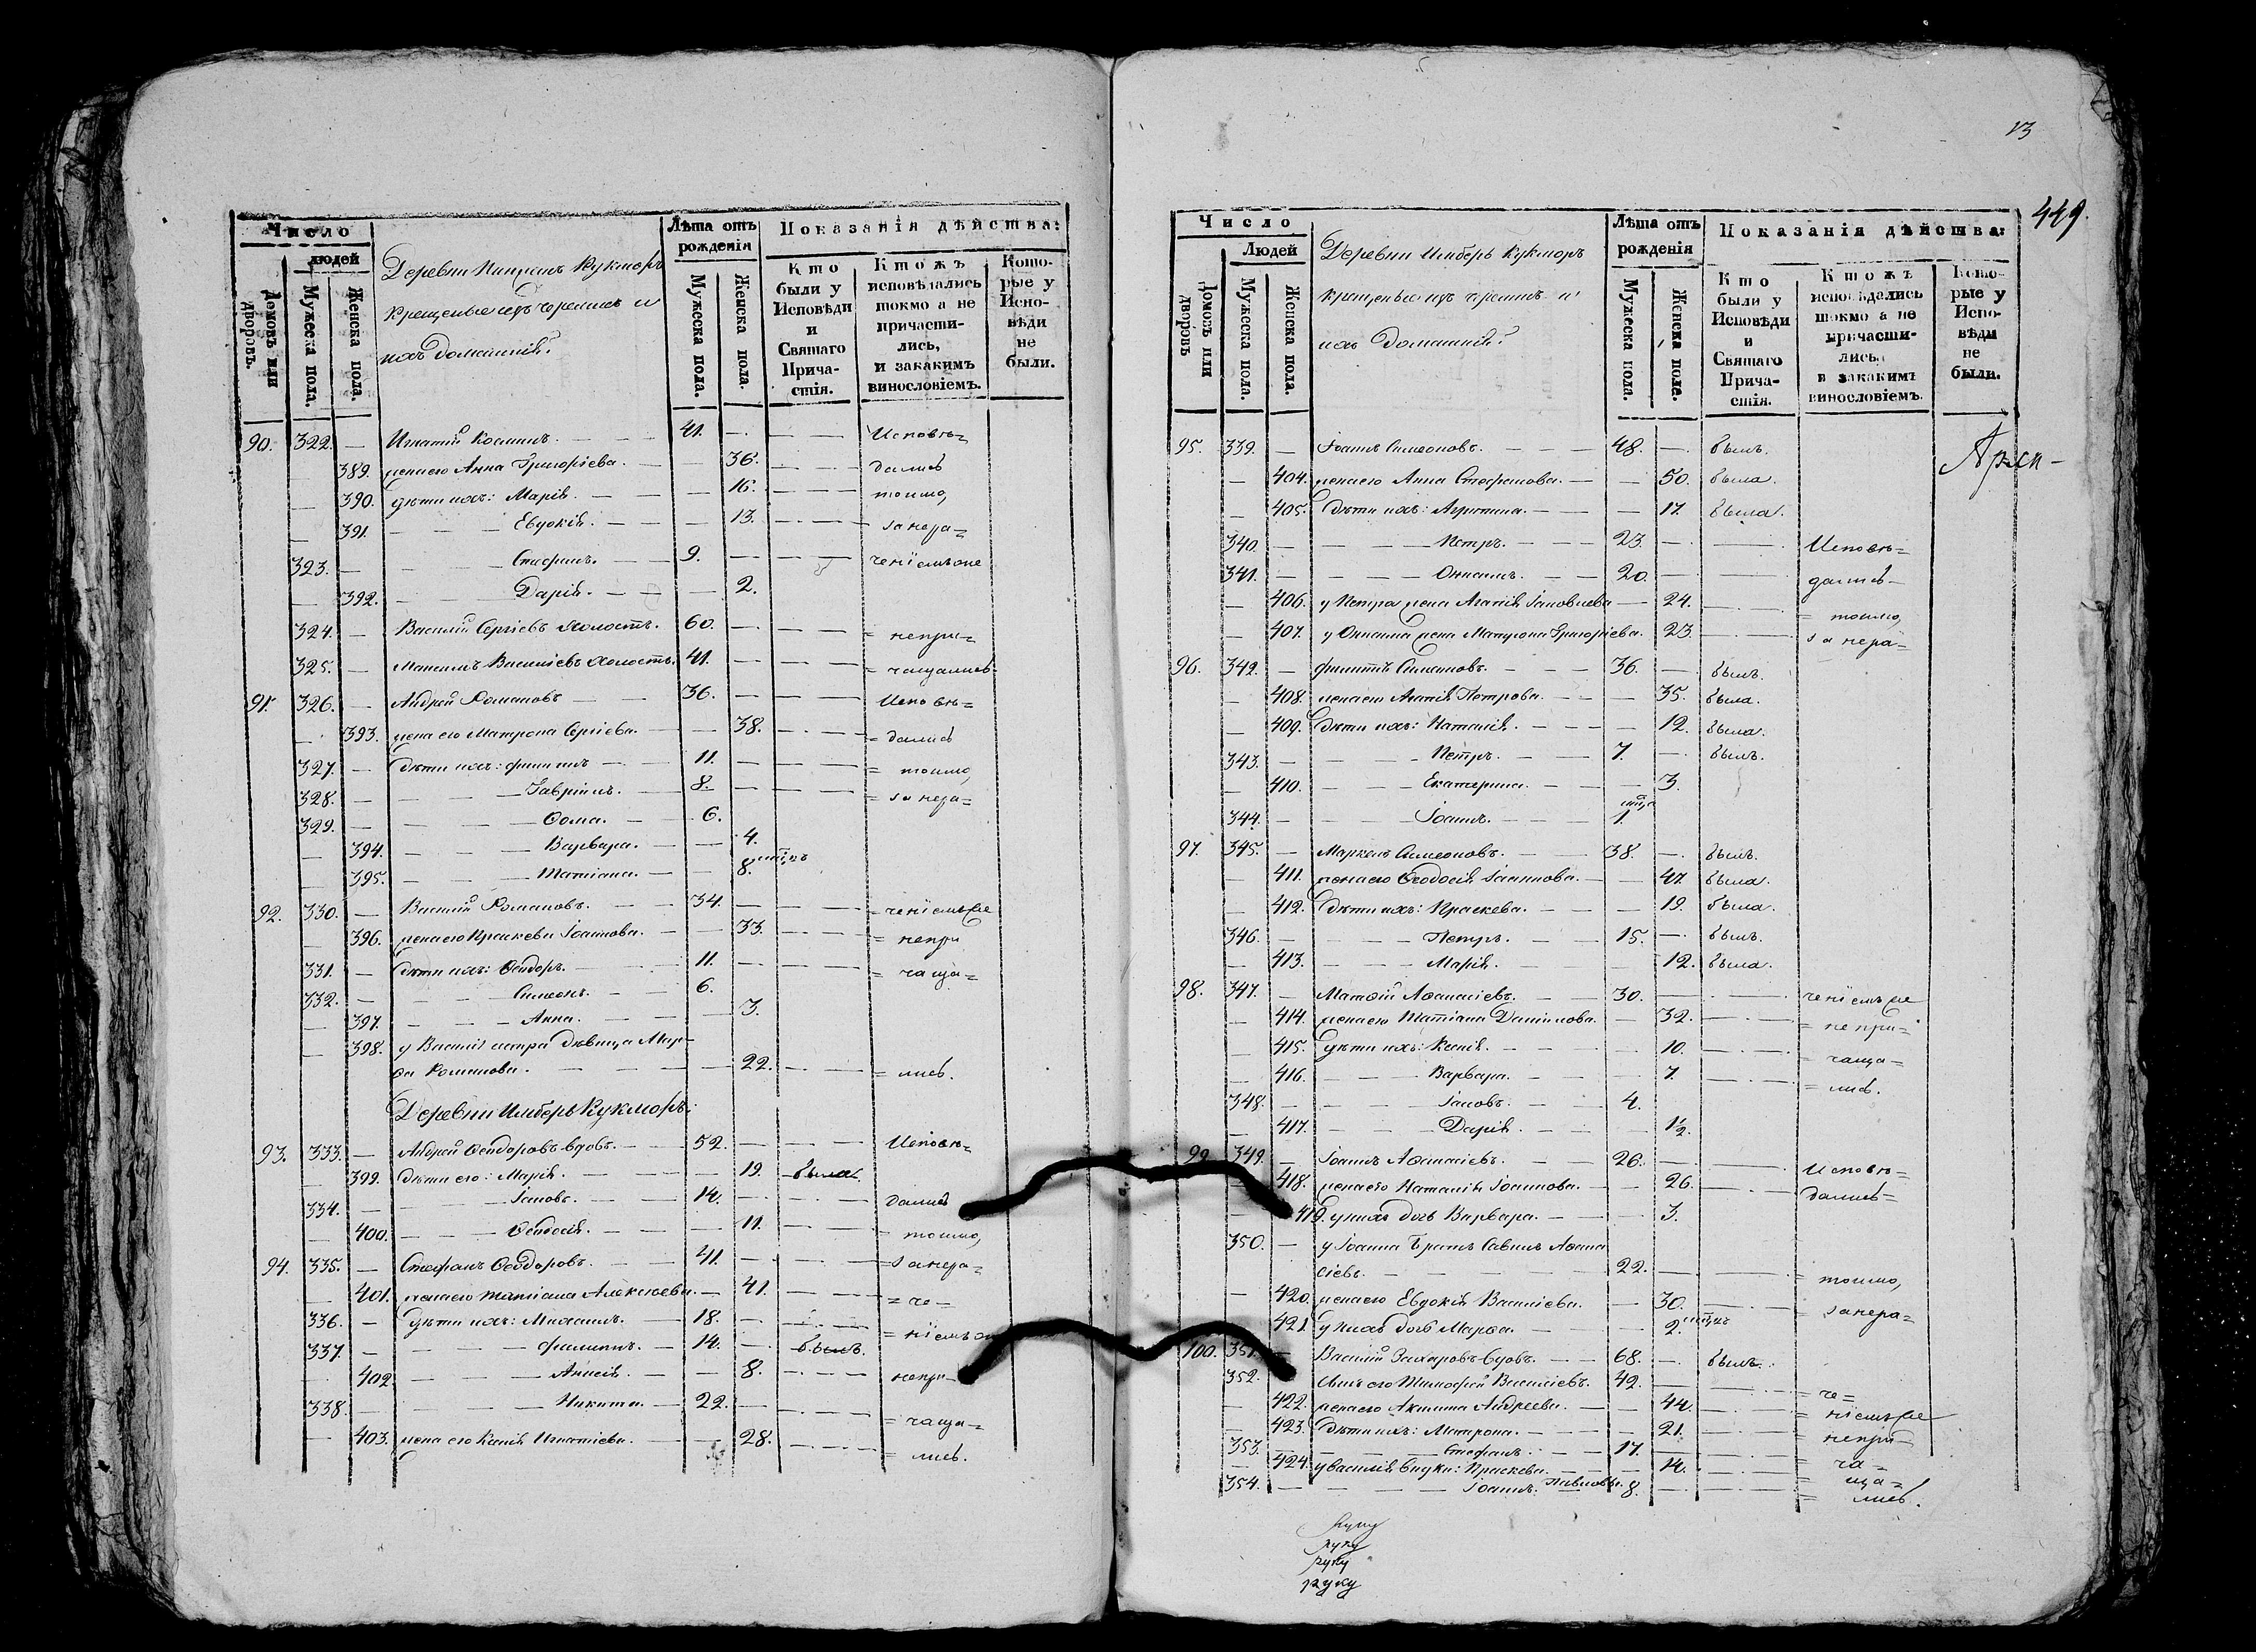 Число
людей
Домовъ или дворовъ.
Мужеска пола.
Женска пола.
Деревни Кукморъ
крещеные изъ черемисъ и
ихъ домашніе
Лѣта отъ рожденія
Мужеска пола.
Женска пола.
Показанія дѣйства:
Кто были у Исповѣди и Святаго Прича-стія.
Ктожъ исповѣдались токмо а не причасти-лись, и закакимъ винословіемъ.
Кото-рые у Испо-вѣди не были.
90. 322. — Игнатій Косминъ. — 41. — Исповѣ=
389. жена его Анна Григоріева. — 36. — дались
390. дѣти ихъ: Марія. — 16. — токмо,
391. — Евдокія. — 13. — за нера=
323. — Стефанъ. — 9. — ченіемъ не
392. — Дарія. — 2.
324. — Василій Сергіевъ холостъ. 60. — = непри=
325. — Максимъ Василіевъ холостъ. 41. — = чащались
91. 326. — Андрей Романовъ — 36. — Исповѣ=
393. жена его Матрона Сергіева. — 38. — = дались
327. — дѣти ихъ: Филиппъ — 11. — = токмо,
328. — Гавріилъ. — 8. — = за нера=
329. — Ѳома. — 6.
394. — Варвара. — 4.
395. — Татіана. — 8.
92. 330. — Василій Романовъ. — 34. — = ченіемъ не
396. жена его Праскева Іоаннова. — 33. — = непри
331. — дѣти ихъ: Ѳеодоръ. — 11. — = чаща=
332. — Симеонъ. — 6.
397. — Анна. — 3.
398. у Василія сестра дѣвица Мар-
ѳа Романова. — 22. — = лись.
Деревни Имберь Кукморъ:
93. 333. — Андрей Ѳеодоровъ вдовъ. — 52. — Исповѣ=
399. дѣти его: Марія. — 19. была.
334. — Іаковъ. — 14. — дались
400. — Ѳеодосія. — 11. — = токмо,
94. 335. — Стефанъ Ѳеодоровъ. — 41. — = за нера=
401. жена его Татіана Алексѣева. — 41. — = че=
336. — дѣти ихъ: Михаилъ. — 18. — = ніемъ
337. — Филиппъ. — 14. — былъ.
402. — Анисія. — 8. — непри=
338. — Никита. — 22. — = чаща=
403. жена его Ксенія Игнатіева. — 28. — = лись.
13
449.
Число
Людей
Домовъ или дворовъ
Мужеска пола.
Женска пола.
Деревни Имберь Кукморъ
крещеные изъ черемисъ и
ихъ домашніе
Лѣта отъ рожденія
Мужеска пола.
Женска пола.
Показанія дѣйства:
Кто были у Исповѣди и Святаго Прича-стія.
Ктожъ исповѣдались токмо а не причасти-лись. и закакимъ винословіемъ.
Кото-рые у Испо-вѣди не были.
95. 339. — Іоаннъ Симеоновъ. — 48. — былъ.
404. жена его Анна Стефанова. — 50. была.
405. Дѣти ихъ: Агрипина. — 17. была.
340. — Петръ. — 23. — Исповѣ=
341. — Онисимъ. — 20. — дались
406. у Петра жена Агапія Іаковлева — 24. — = токмо,
407. у Онисима жена Матрона Григоріева. 23. — за нера=
96. 342. — Филиппъ Симеоновъ. — 36. — былъ.
408. жена его Агапія Петрова. — 35. была.
409. Дѣти ихъ: Наталія. — 12. была.
343. — Петръ. — 7. — былъ.
410. — Екатерина. — 3.
344. — Іоаннъ. — 1.
97. 345. — Маркелъ Симеоновъ. — 38. — былъ.
411. жена его Ѳеодосія Іоаннова. — 47. была.
412. Дѣти ихъ: Праскева. — 19. была.
346. — Петръ. — 15. — былъ.
413. — Марія. — 12. была.
98. 347. — Матѳій Аѳанасіевъ. — 30. — ченіемъ не
414. жена его Татіана Даниилова. — 32. — = непри=
415. дѣти ихъ: Ксенія. — 10. — = чаща=
416. — Варвара. — 7. — = лись.
348. — Іаковъ. — 4.
417. — Дарія. — 1/2.
99. 349. — Іоаннъ Аѳанасіевъ. — 26. — Исповѣ=
418. жена его Наталія Іоаннова. — 26. — дались=
419. у нихъ дочь Варвара. — 3.
350. — у Іоанна братъ Савинъ Аѳана
сіевъ. — 22. — = токмо,
420. жена его Евдокія Василіева. — 30. — = за нера=
421. у нихъ дочь Марѳа. — 2.
100. 351. — Василій Захаровъ вдовъ. — 68. — былъ.
352. Сынъ его Тимоѳей Василіевъ. 42. — = че=
422. жена его Акилина Андреева. — 44. — = ніемъ не
423. Дѣти ихъ: Матрона. — 21. — = непри=
353. — Стефанъ. — 17. — = ча=
424. у Василія внуки: Праскева — 14. — = ща=
354. — Іоаннъ. Павловы. 8. — = лись.
руку
руку
руку
руку